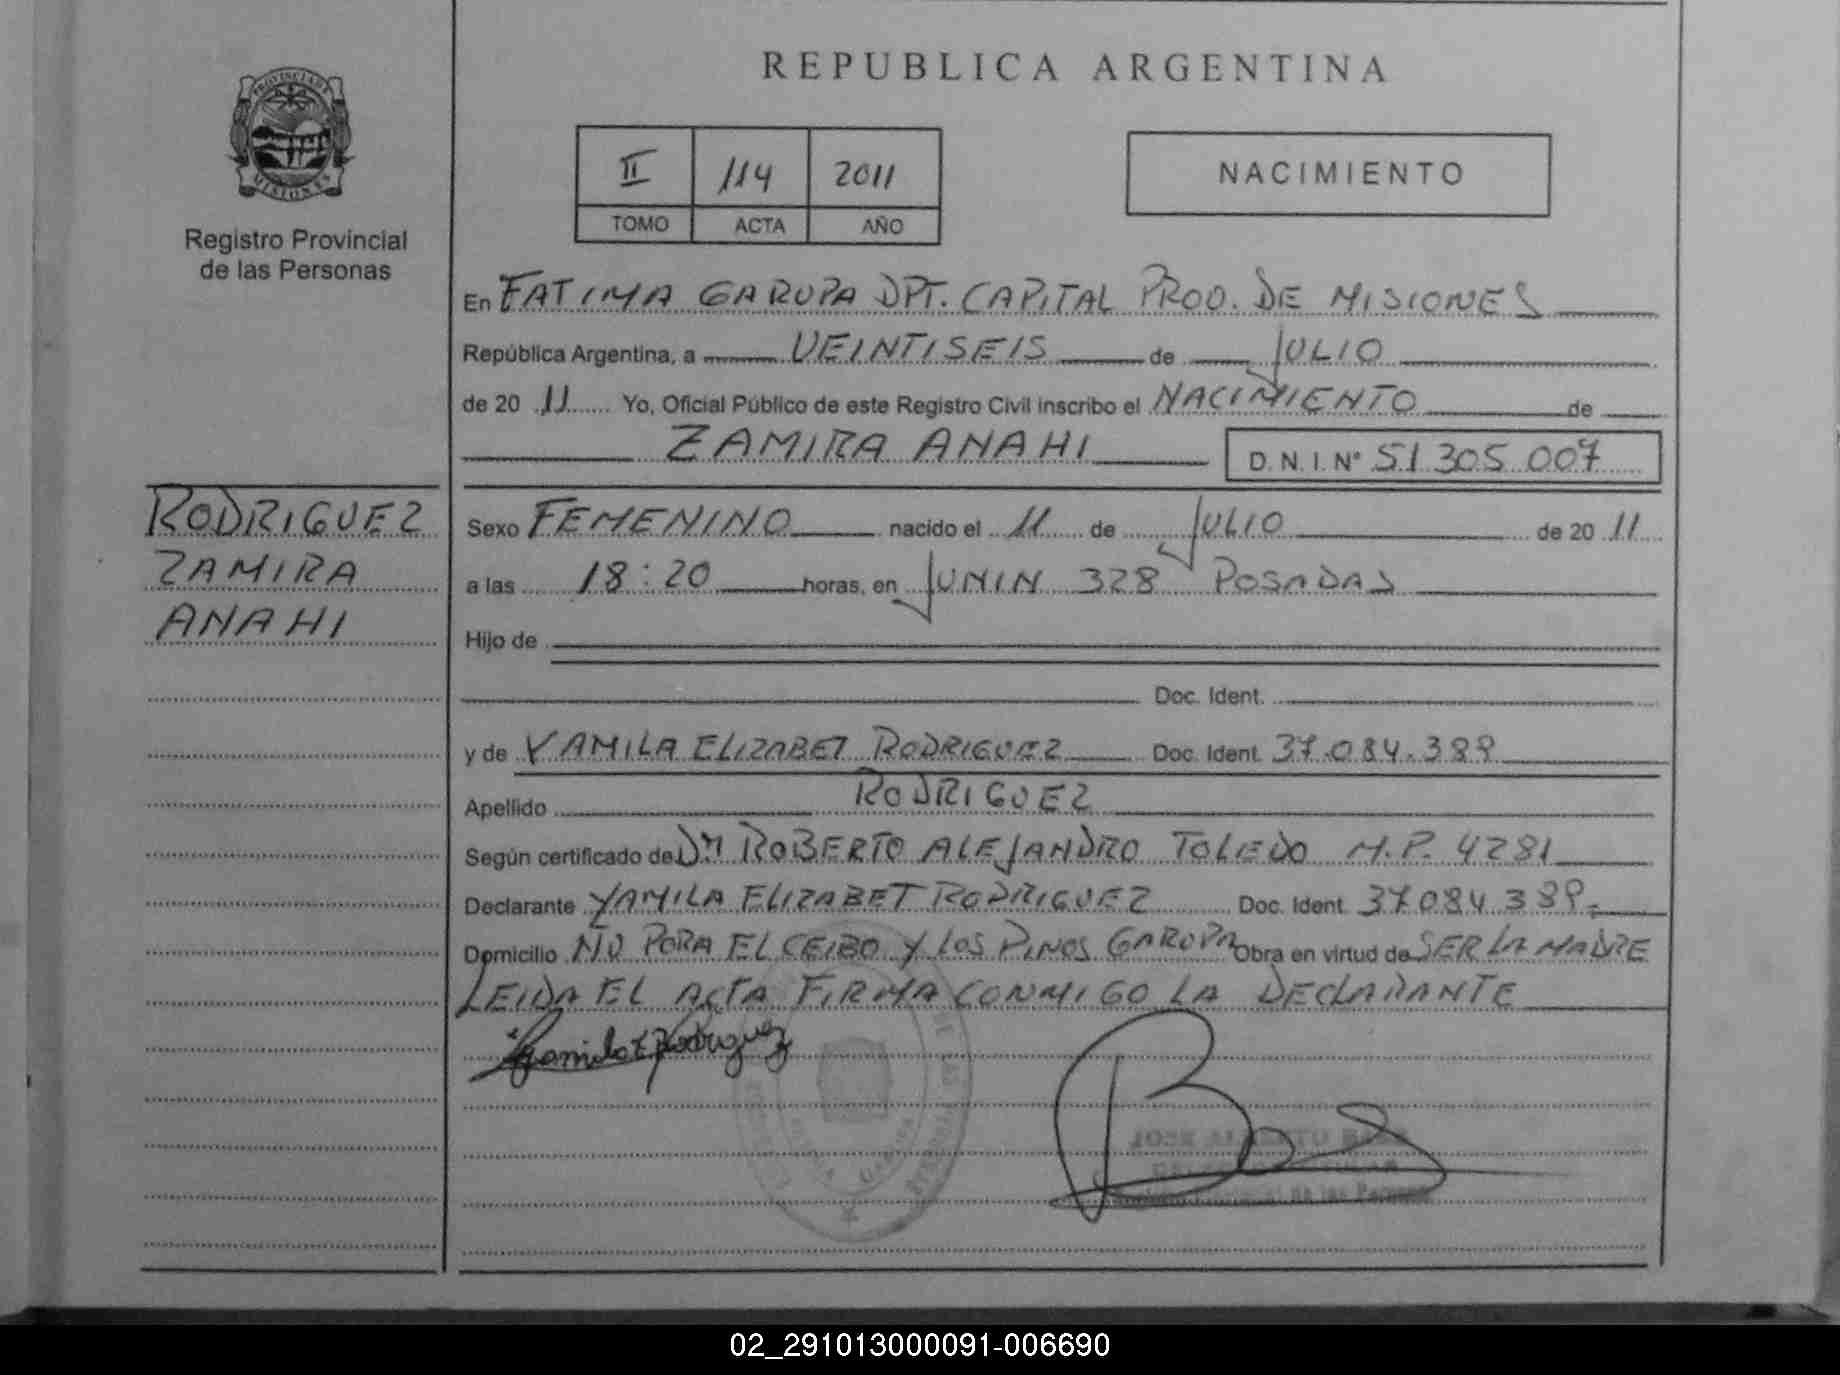 REPUBLICA ARGENTINA
PROVINCIA DE
MISIONES
Registro Provincial
de las Personas
II 114 2011
TOMO ACTA AÑO
NACIMIENTO
En FATIMA GARUPA DPT. CAPITAL PROV. DE MISIONES
República Argentina, a VEINTISEIS de JULIO
de 20 11 Yo, Oficial Público de este Registro Civil inscribo el NACIMIENTO de
ZAMIRA ANAHI D.N.I.Nº 51 305 007
RODRIGUEZ
ZAMIRA
ANAHI
Sexo FEMENINO nacido el 11 de JULIO de 20 11
a las 18:20 horas, en JUNIN 328 POSADAS
Hijo de
Doc. Ident.
y de YAMILA ELIZABET RODRIGUEZ Doc. Ident. 37.084.389
Apellido RODRIGUEZ
Según certificado de Dr ROBERTO ALEJANDRO TOLEDO M.P. 4281
Declarante YAMILA ELIZABET RODRIGUEZ Doc. Ident. 37 084 389
Domicilio NU PORA EL CEIBO Y LOS PINOS GARUPA Obra en virtud de SER LA MADRE
LEIDA EL ACTA FIRMA CONMIGO LA DECLARANTE
Yamila E Rodriguez
02_291013000091-006690